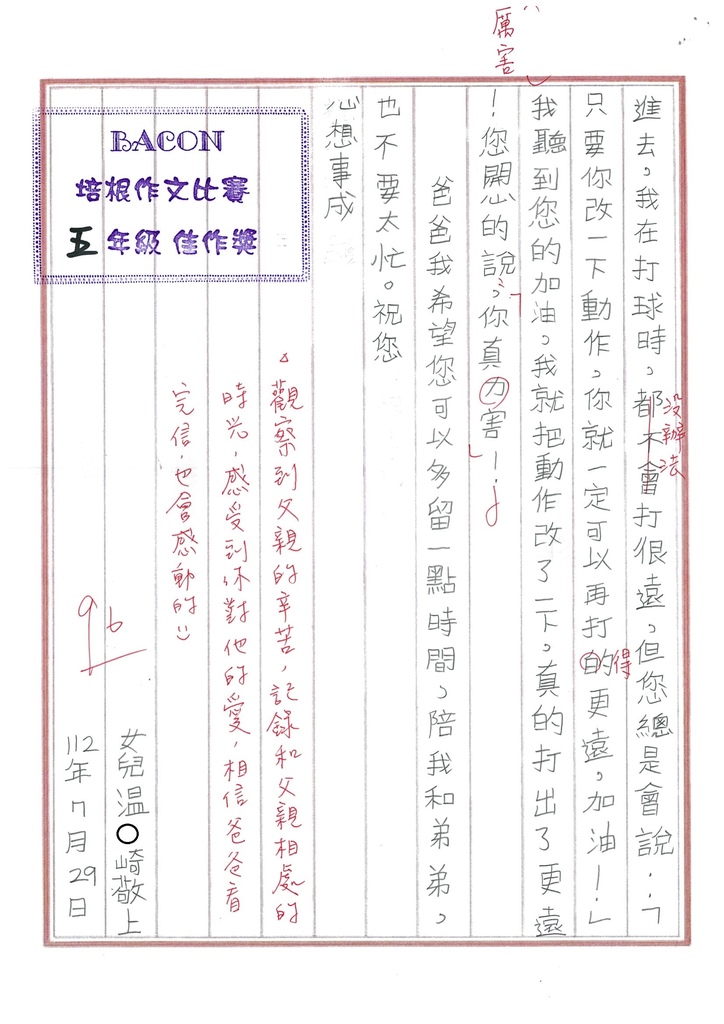 進去，我在打球時，都不會打很遠，但您總是會說：「
沒辦法
只要你改一下動作，你就一定可以再打的更遠，加油！」
得
我聽到您的加油，我就把動作改了一下，真的打出了更遠
！您開心的說：「你真力害！」
厲害
爸爸我希望您可以多留一點時間，陪我和弟弟，
也不要太忙。祝您
心想事成
BACON
培根作文比賽
五年級 佳作獎
觀察到父親的辛苦，記錄和父親相處的
時光，感受到你對他的愛，相信爸爸看
完信，也會感動的
96
女兒溫〇崎敬上
112年7月29日